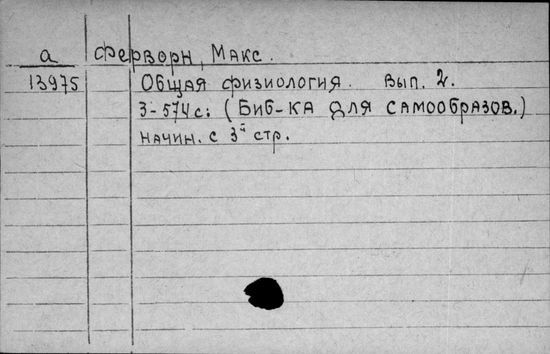 а Ферворн, Макс.
13975 Общая физиология. Вып. 2.
3-574с: (Биб-ка для самообразов.)
начин. с 3й стр.